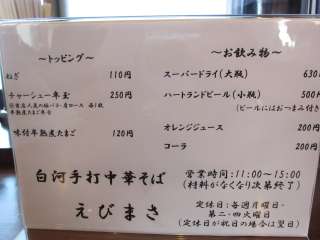 ～トッピング～
ねぎ 110円
チャーシュー年玉 250円
味付半熟煮たまご 120円
～お飲み物～
スーパードライ(大瓶) 630
ハートランドビール(小瓶) 500
(ビールにはおつまみ付き
オレンジジュース 200円
コーラ 200円
白河手打中華そば
えびまさ
営業時間：11:00～15:00
(材料がなくなり次第終了)
定休日：毎週月曜日・
第二・四火曜日
(定休日が祝日の場合は翌日)